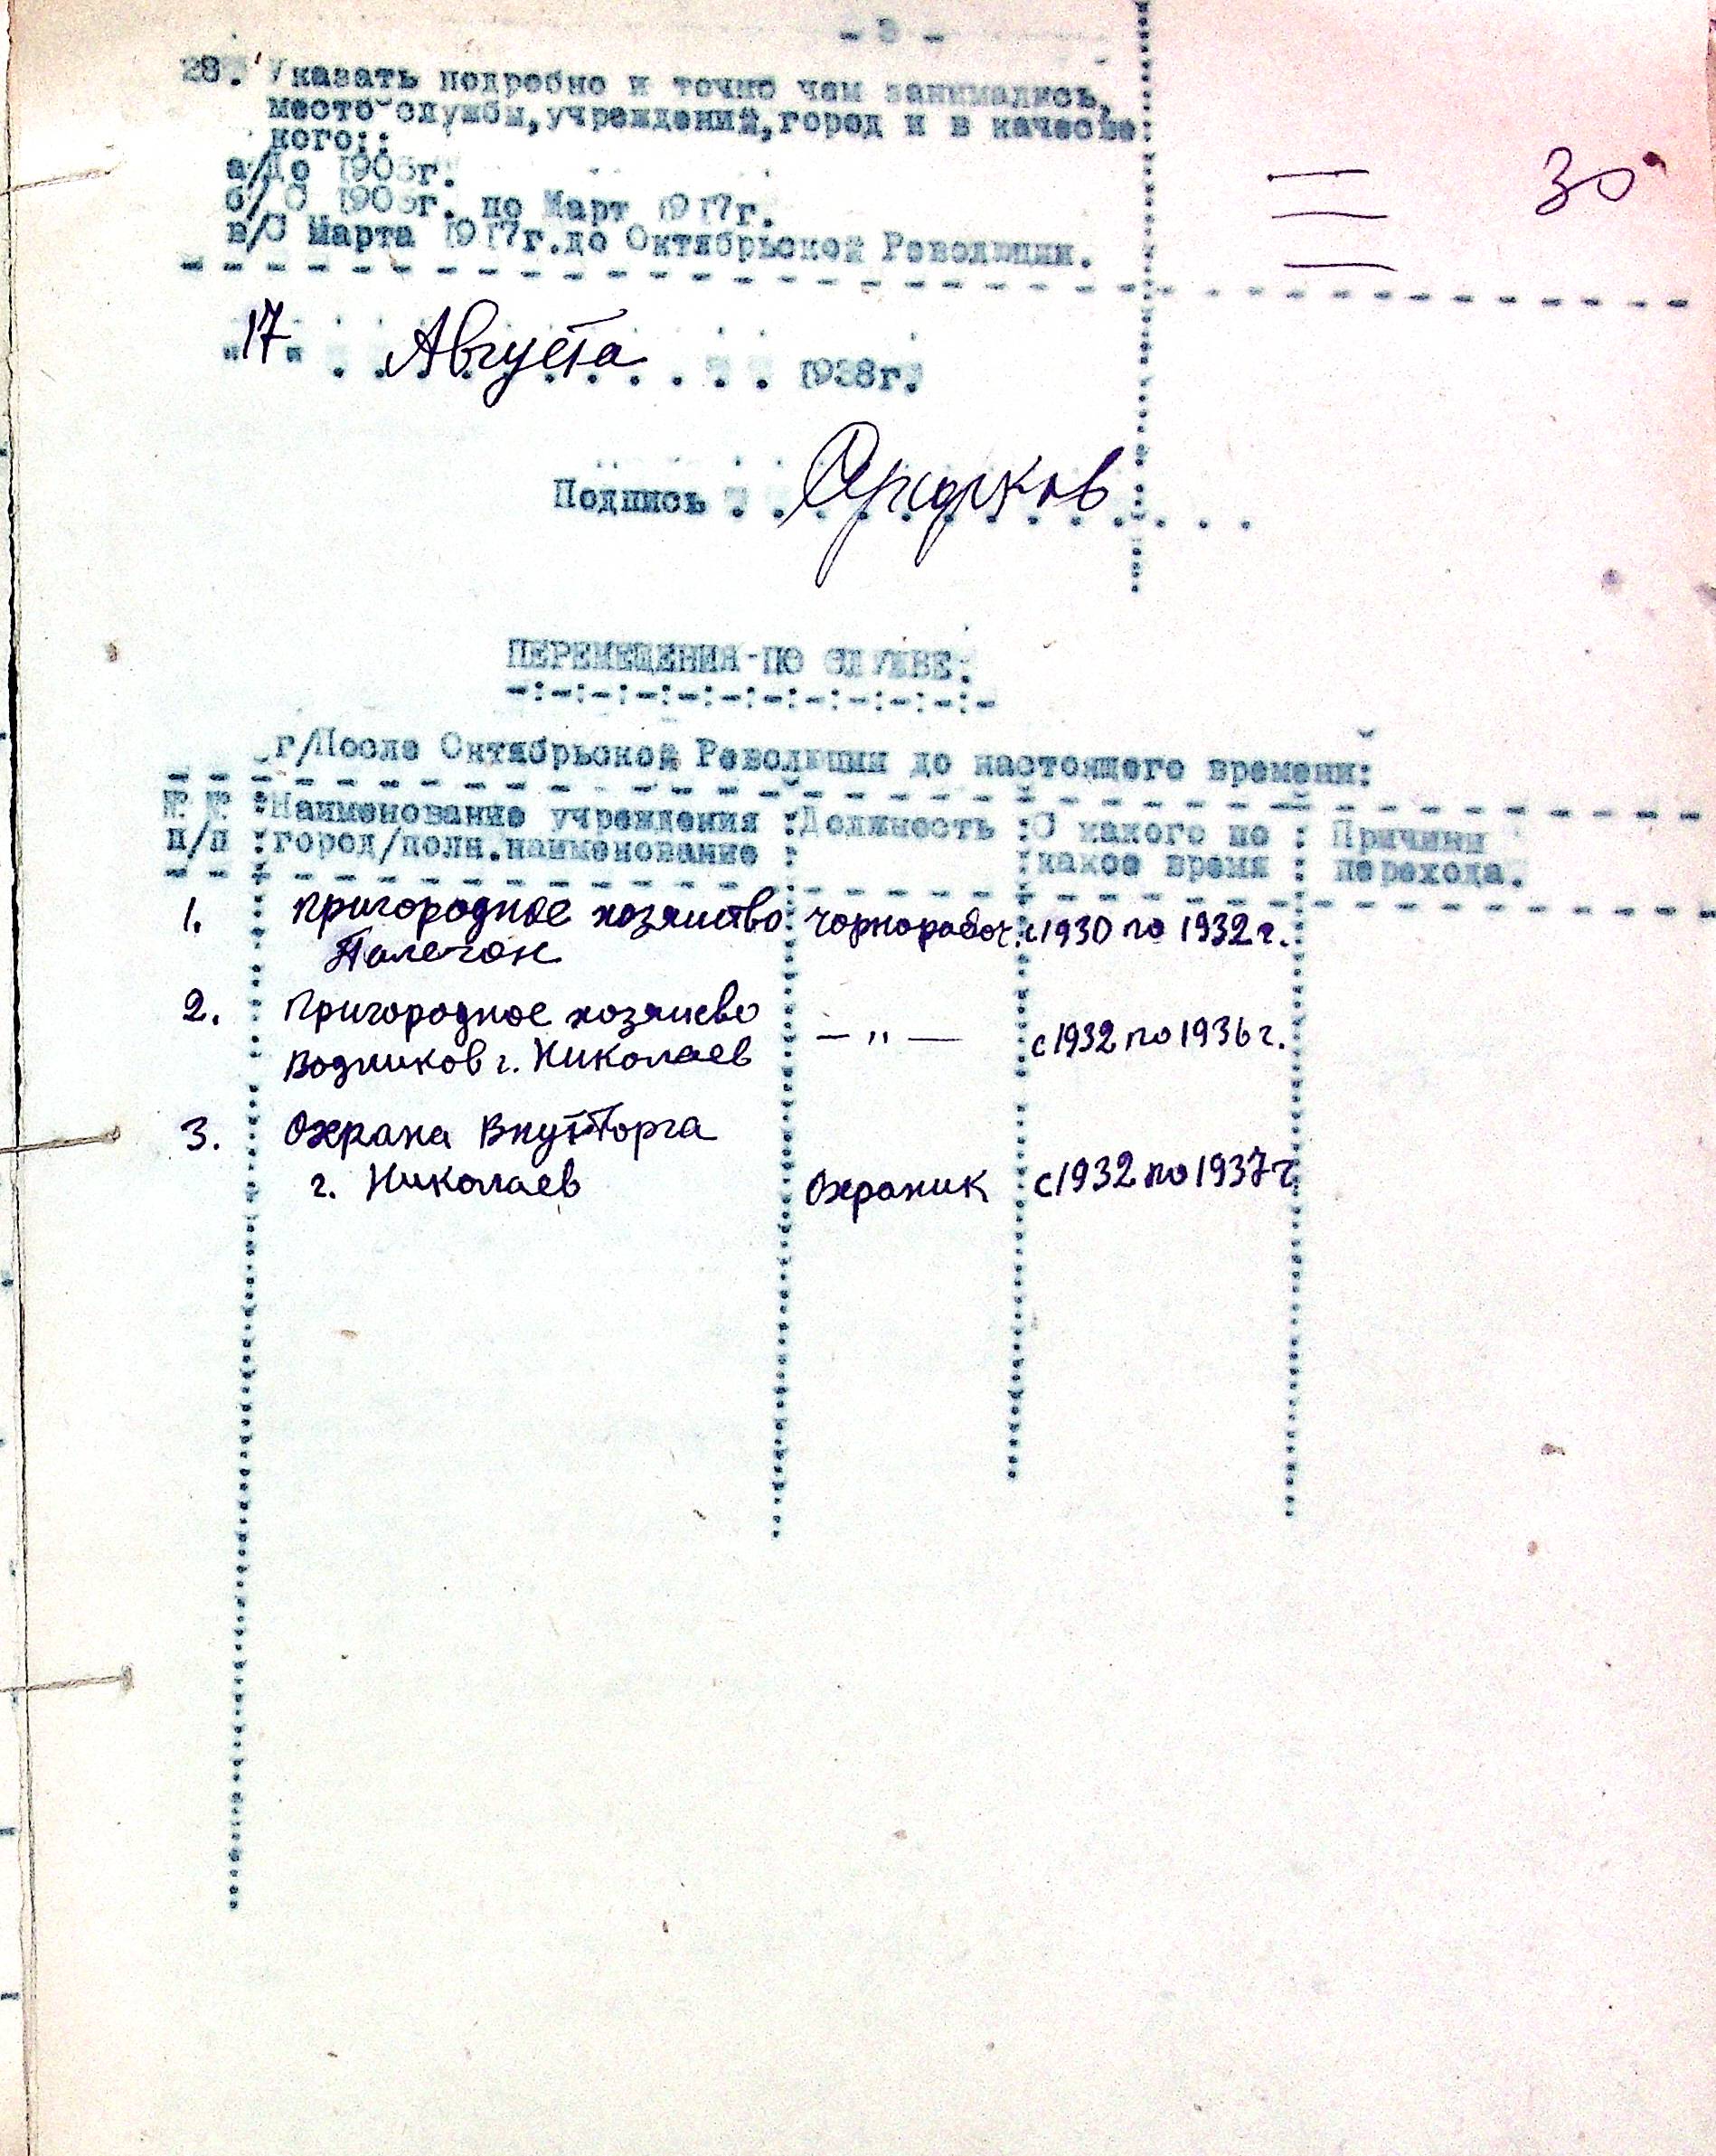 - 3 -
28. Указать подробно и точно чем занимались,
место службы, учреждений, город и в качесве
кого::
а/До 1905г.
б/ С 1905г. по Март 1917г.
в/С Марта 1917г. до Октябрьской Революции.
30
"17" Августа 1938г.
Подпись
ПЕРЕМЕЩЕНИЯ-ПО СЛУЖБЕ:
г/После Октябрьской Революции до настоящего времени:
№ № : Наименование учреждения : Должность : С какого по : Причины
п/п : город/полн.наименование : : какое время : перехода.
1. Пригородное хозяиство чорнорабоч. с 1930 по 1932 г.
2. Пригородное хозяисво
Водников г. Николаев — " — с 1932 по 1936 г.
3. Охрана ВнутТорга
г. Николаев Охраник с 1932 по 1937 г